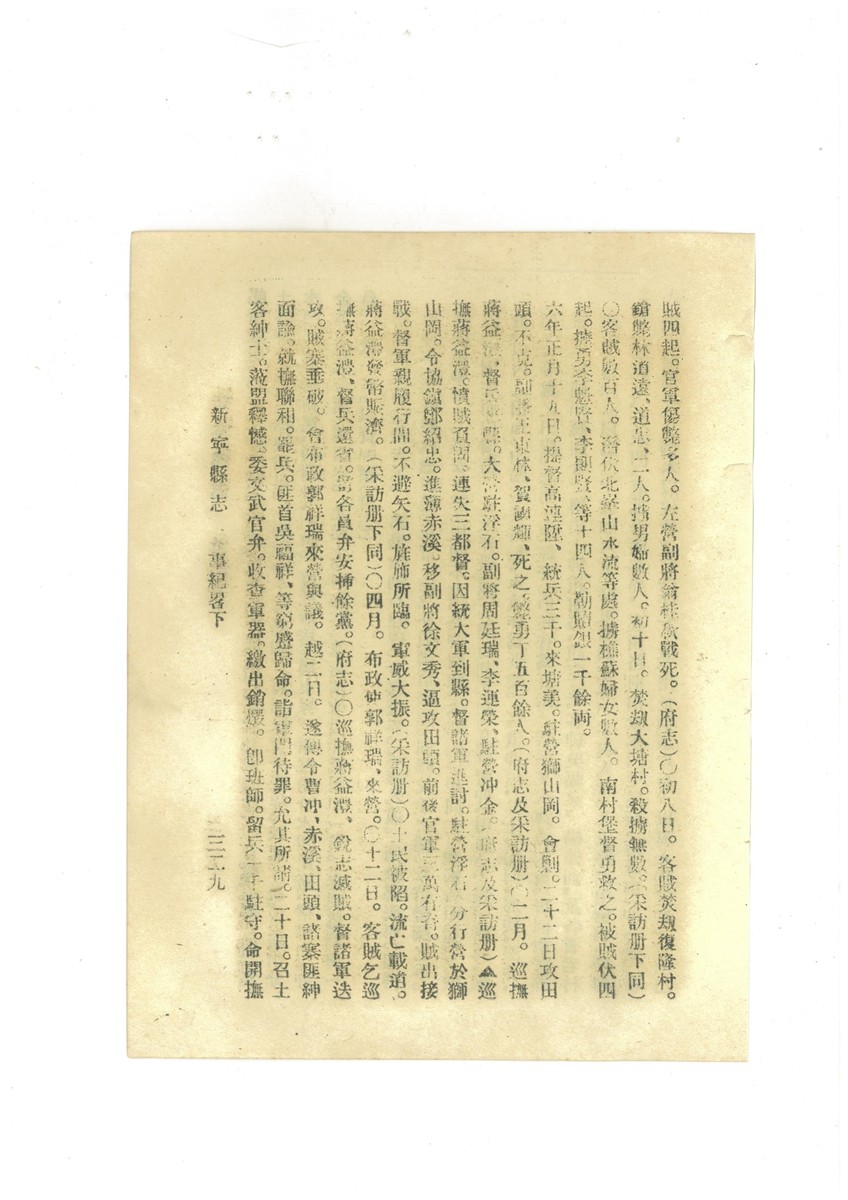 賊四起。官軍傷斃多人。左營副將 桂秋戰死。（府志）〇初八日。客賊焚刼復隆村。
鎗斃林道遠、道忠、二人。擄男婦數人。初十日。焚刼大塘村。殺擄無數。（采訪册下同）
〇客賊數百人。潛伏北 山水流等處。擄樵蘇婦女數人。南村堡督勇救之。被賊伏四
起。擄勇李魁賢、李 賢、等十四人。勒贖銀一千餘両。
六年正月十九日。提督高連陞、統兵三千。來塘美。駐營獅山岡。會剿。二十二日攻田
頭。不克。副將王東林、賀 輝、死之。斃勇丁五百餘人。（府志及采訪册）〇二月。巡撫
蔣益澧、督兵 縣。大營駐浮石。副將周廷瑞、李連榮、駐營冲金。（府志及采訪册）▲巡
撫蔣益澧。憤賊負固。連失三都督。因統大軍到縣。督諸軍進討。駐營浮石 分行營於獅
山岡。令協鎮鄭紹忠。進薄赤溪。移副將徐文秀、逼攻田頭。前後官軍三萬有奇。賊出接
戰。督軍親履行間。不避矢石。旌斾所臨。軍威大振。（采訪册）〇士民被陷。流亡載道。
蔣益澧發帑賑濟。（采訪册下同）〇四月。布政使郭祥瑞、來營。〇十二日。客賊乞巡
撫蔣益澧、督兵還省。留各員弁安揷餘黨。（府志）〇巡撫蔣益澧、銳志滅賊。督諸軍迭
攻。賊寨垂破。會布政郭祥瑞來營與議。越二日。遂傳令曹冲、赤溪、田頭、諸寨匪紳
面諭。就撫聯和。罷兵。匪首吳福祥、等窮蹙歸命。詣軍門待罪。允其所請。二十日。召土
客紳士。蒞盟釋憾。委文武官弁。收查軍器。繳出銷燬。卽班師。留兵一千駐守。命開撫
新寧縣志 事紀畧下 三二九